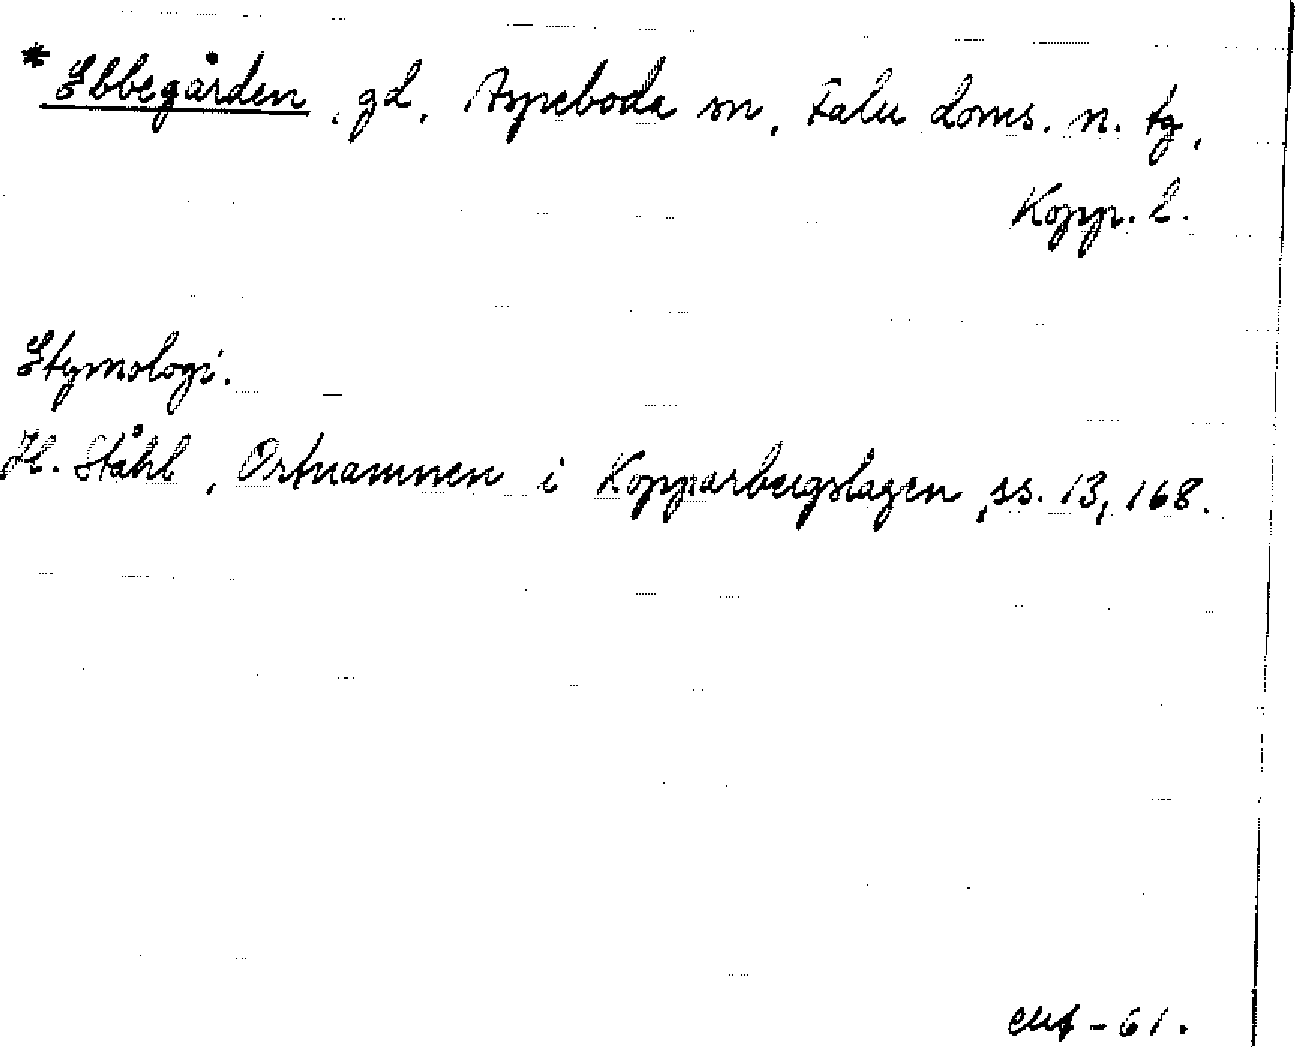 * Ebbegården, gd, Aspeboda sn, Falu doms. n. tg,
Kopp. l.
Etymologi.
H. Ståhl, Ortnamnen i Kopparbergslagen, ss. 13, 168.
-61.